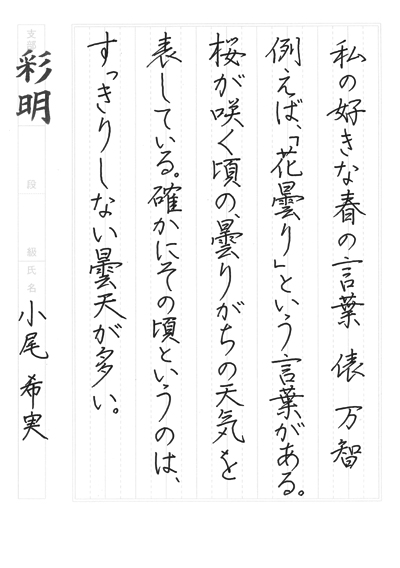 私の好きな春の言葉　俵　万智
例えば、「花曇り」という言葉がある。
桜が咲く頃の、曇りがちの天気を
表している。確かにその頃というのは、
すっきりしない曇天が多い。
支部
彩明
段
級
氏名
小尾　希実